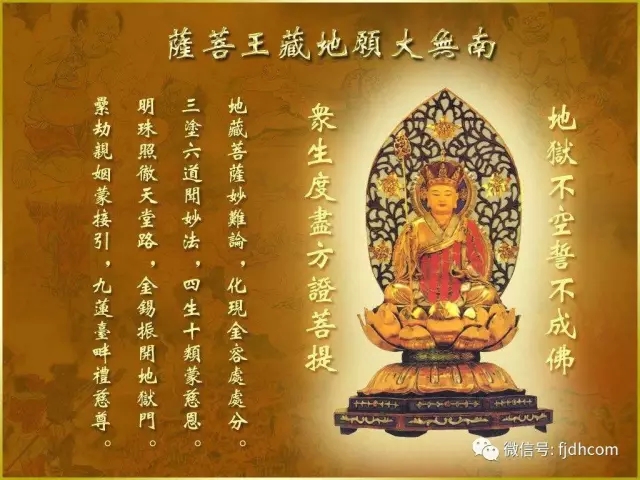 南無大願地藏王菩薩
地獄不空誓不成佛
衆生度盡方證菩提
地藏菩薩妙難論，化現金容處處分。
三塗六道聞妙法，四生十類蒙慈恩。
明珠照徹天堂路，金錫振開地獄門。
纍劫親姻蒙接引，九蓮臺畔禮慈尊。
微信号: fjdhcom